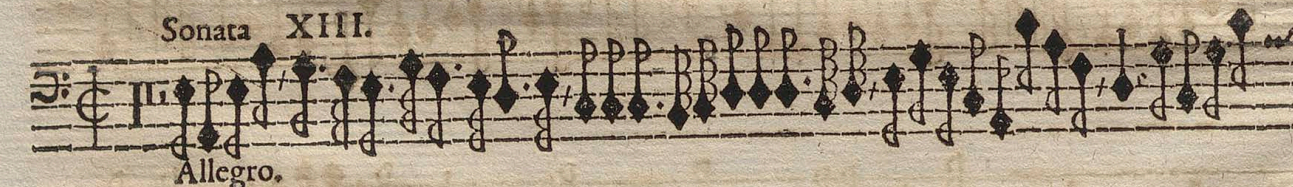 Sonata XIII.
Allegro.